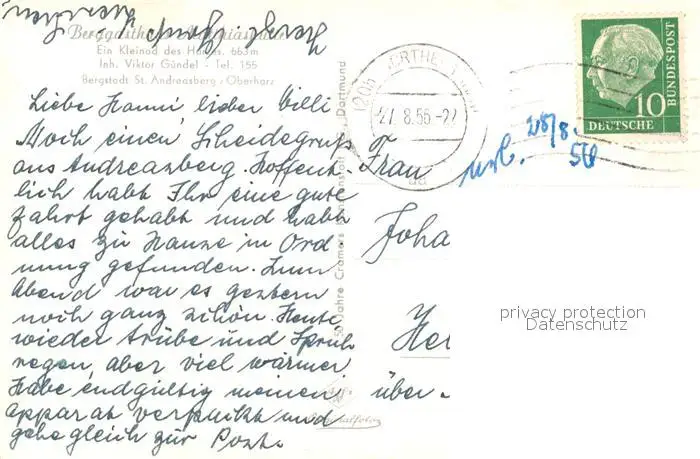 Berggasthaus
Ein Kleinod des Harzes. 663 m
Inh. Viktor Gündel - Tel. 155
Bergstadt St. Andreasberg - Oberharz
Liebe Hanni, lieber Willi
Noch einen Scheidegruß
aus Andreasberg. Hoffent-
lich habt Ihr eine gute
Fahrt gehabt und habt
alles zu Hause in Ord
nung gefunden. Zum
Abend war es gestern
noch ganz schön. Heute
wieder trübe und Sprüh
regen, aber viel wärmer
Habe endgültig meinen
Apparat verpackt und
gehe gleich zur Post.
50 Jahre Cramers Dortmund
27.8.56-22
DEUTSCHE
BUNDESPOST
10
28/8.
56
Frau
Joha
He
über
privacy protection
Datenschutz